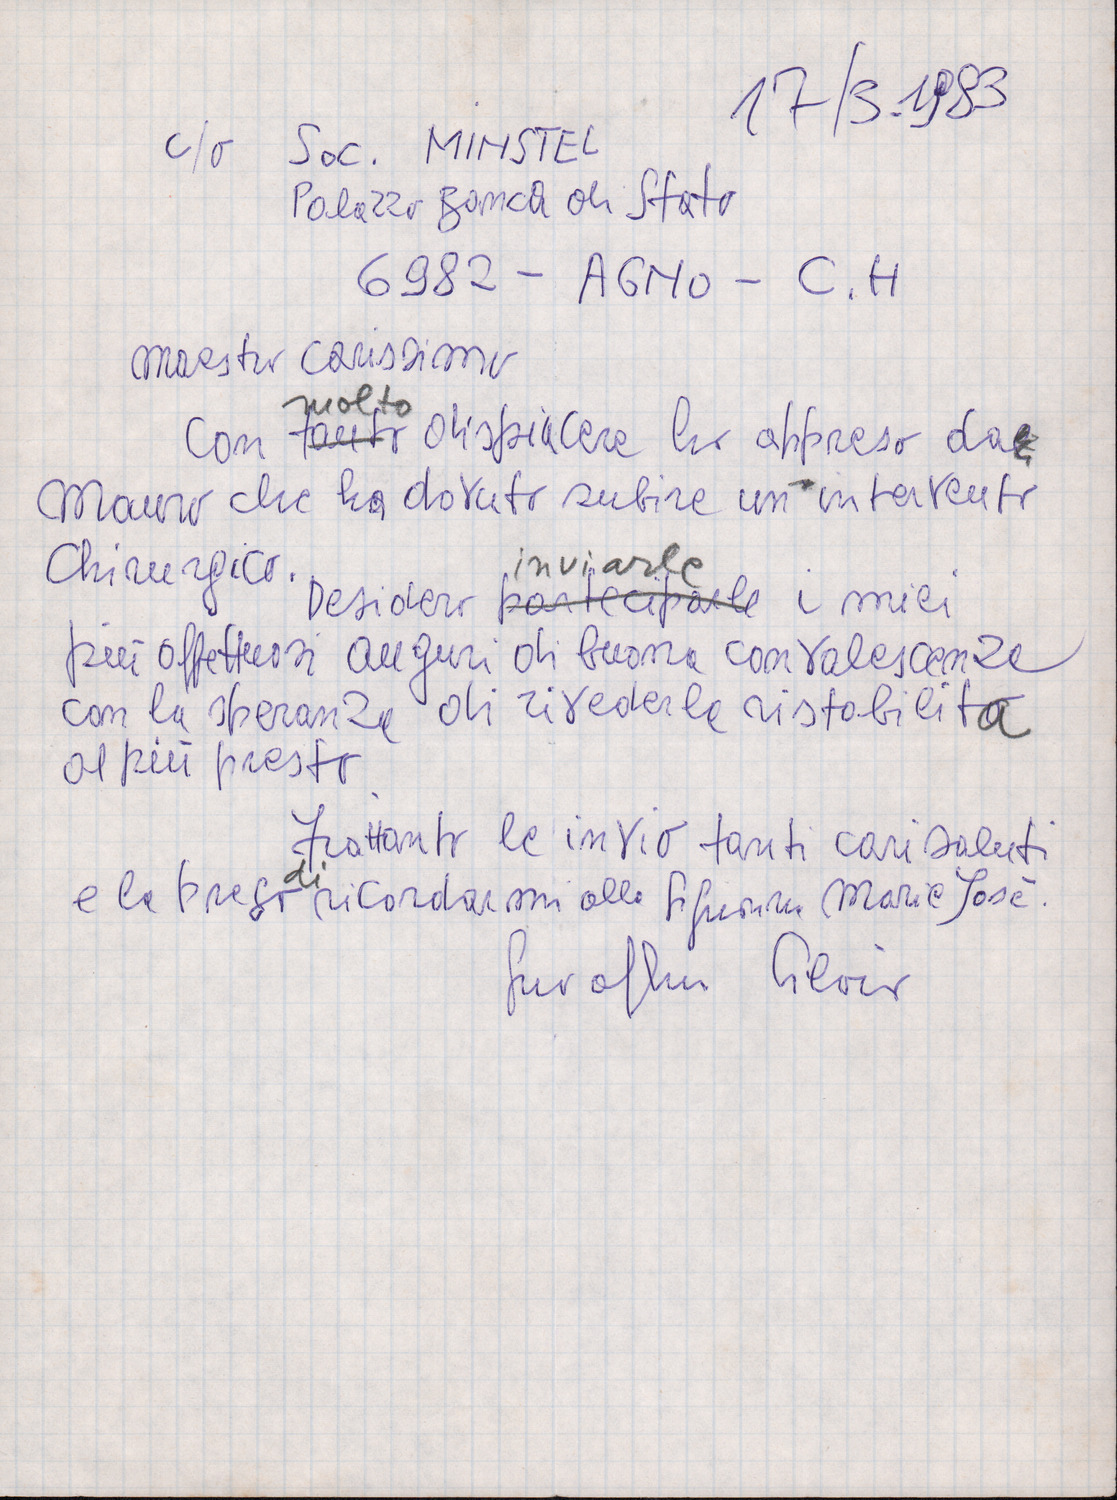 17/3.1983
c/o Soc. MINSTEL
Palazzo Banca di Stato
6982 - AGNO - C.H
Maestro Carissimo
molto
Con tanto dispiacere ho appreso da
Mauro che ha dovuto subire un intervento
Chirurgico.
inviarle
Desidero parteciparle i miei
più affettuosi auguri di buona convalescenza
con la speranza di rivederla ristabilita
al più presto
Frattanto le invio tanti cari saluti
di
e la prego ricordarmi alla Signorina Marie Josè.
Silvio